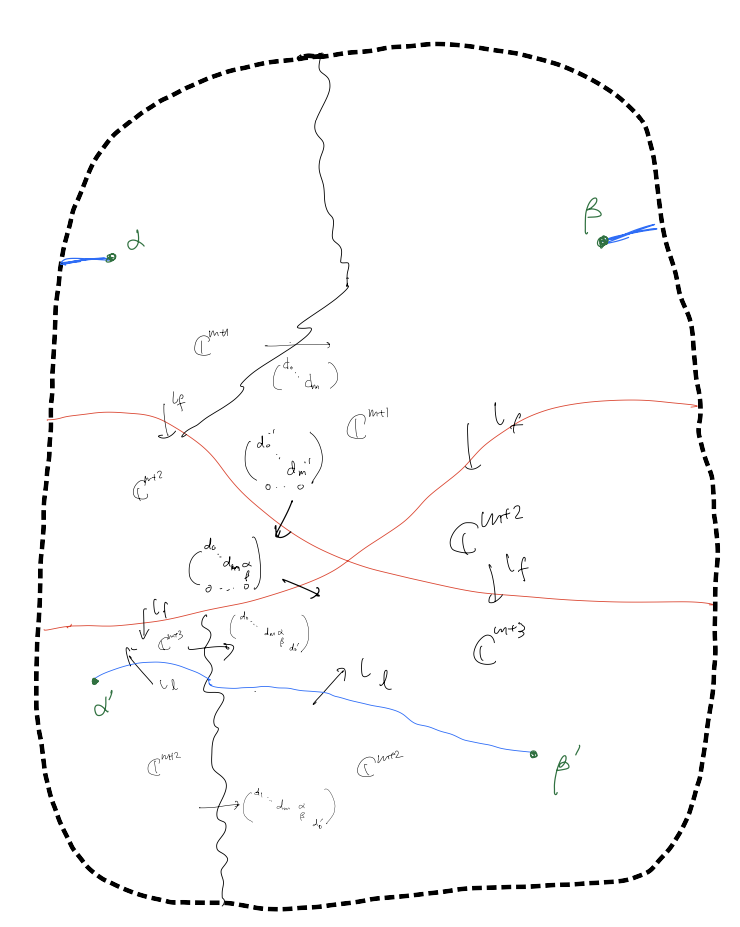 β
α
ℂ^{m+1}
(d₀ ⋱ d_m)
ι_f
ι_f
ℂ^{m+1}
(d₀⁻¹ ⋱ d_m⁻¹
0 ... 0)
ℂ^{m+2}
ℂ^{m+2}
(d₀ ⋱ d_m α
β
0 .... 0)
ι_f
ι_f
ℂ^{m+3}
(d₀ ⋱ d_m α
β d₀')
ℂ^{m+3}
ι_l
ι_l
α'
β'
ℂ^{m+2}
ℂ^{m+2}
(d₁ ⋱ d_m α
β d₀')